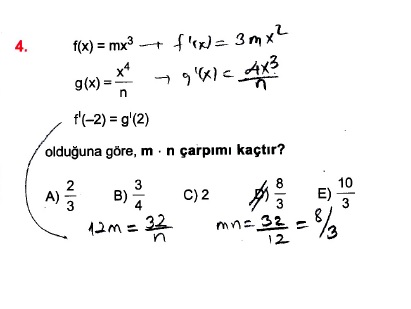 4. f(x) = mx³ → f'(x) = 3mx²
g(x) = x⁴/n → g'(x) = 4x³/n
f'(–2) = g'(2)
olduğuna göre, m · n çarpımı kaçtır?
A) 2/3 B) 3/4 C) 2 D) 8/3 E) 10/3
12m = 32/n mn = 32/12 = 8/3